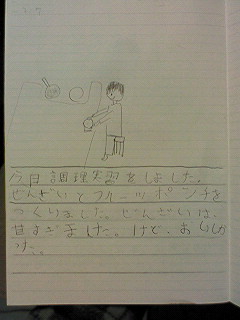 今日調理実習をしました。
ぜんざいとフルーツポンチを
つくりました。ぜんざいは、
甘すぎました。けど、おいしか
った。